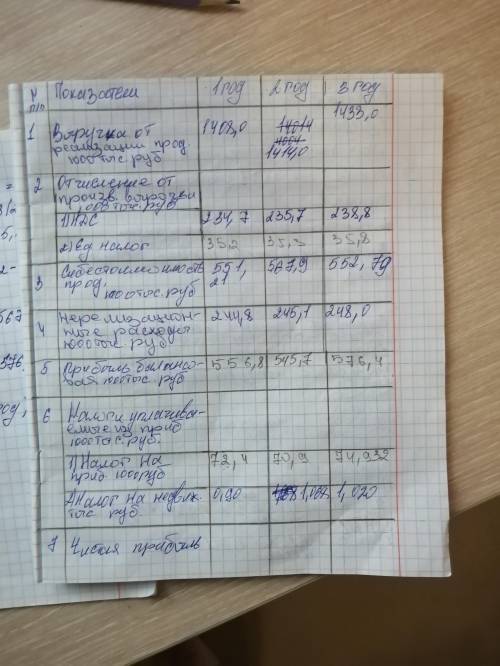 N п/п Показатели 1 год 2 год 3 год
1 Выручка от 1408,0 1433,0
реализации прод.
1000 тыс руб 1414,0
2 Отчисление от
произв. выручки
1000 тыс. руб
1) НДС 234,7 235,7 238,8
2) Ед налог 35,2 35,3 35,8
3 Себестоимость 551, 567,9 552,79
прод. 21
1000 тыс. руб
4 Нереализацион- 244,8 245,1 248,0
ные расходы
1000 тыс руб
5 Прибыль балансо- 556,8 545,7 576,4
вая 1000 тыс. руб
6 Налоги уплачива-
емые из приб
1000 тыс. руб.
1) Налог на 72,4 70,9 74,932
приб 1000 руб
2) Налог на недвиж. 0,90 1,020
тыс руб.
7 Чистая прибыль
567
376